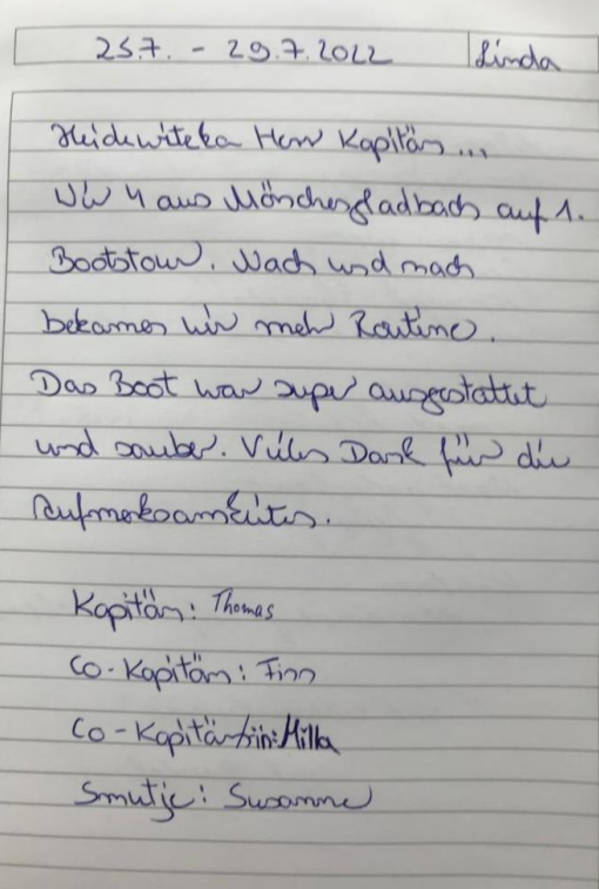 25.7. - 29.7.2022 Linda
Heidewitzka Herr Kapitän ...
Wir 4 aus Mönchengladbach auf 1.
Bootstour. Nach und nach
bekamen wir mehr Routine.
Das Boot war super ausgestattet
und sauber. Vielen Dank für die
Aufmerksamkeiten.
Kapitän: Thomas
Co-Kapitän: Finn
Co-Kapitänin: Milla
Smutje: Susanne